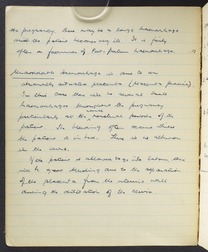 the pregnancy. There may be a large haemorrhage
and the patient becomes very ill. It is fairly
often a forerunner of Post-Partum haemorrhage.
Unavoidable haemorrhage is due to an
abnormally situated placenta (placenta praevia)
In this case there will be more or less
haemorrhage throughout the pregnancy
particularly at the menstrual periods of the
patient. The bleeding often occurs when
the patient is in bed. There is no albumin
in the urine.
If the patient is allowed to go into labour there
will be great bleeding due to the separation
of the placenta from the uterine wall
during the dilatation of the cervix